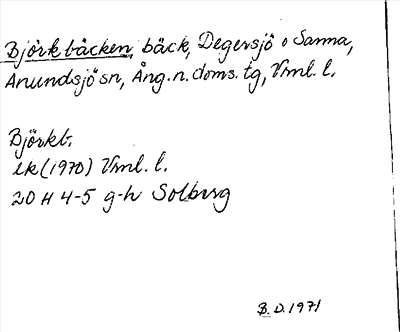 Björkbäcken, bäck, Degersjö o Sanna,
Anundsjö sn, Ång. n. doms. tg, Vrnl. l.
Björkt.
ek (1970) Vrnl. l.
20 H 4-5 g-h Solberg
B. D. 1971